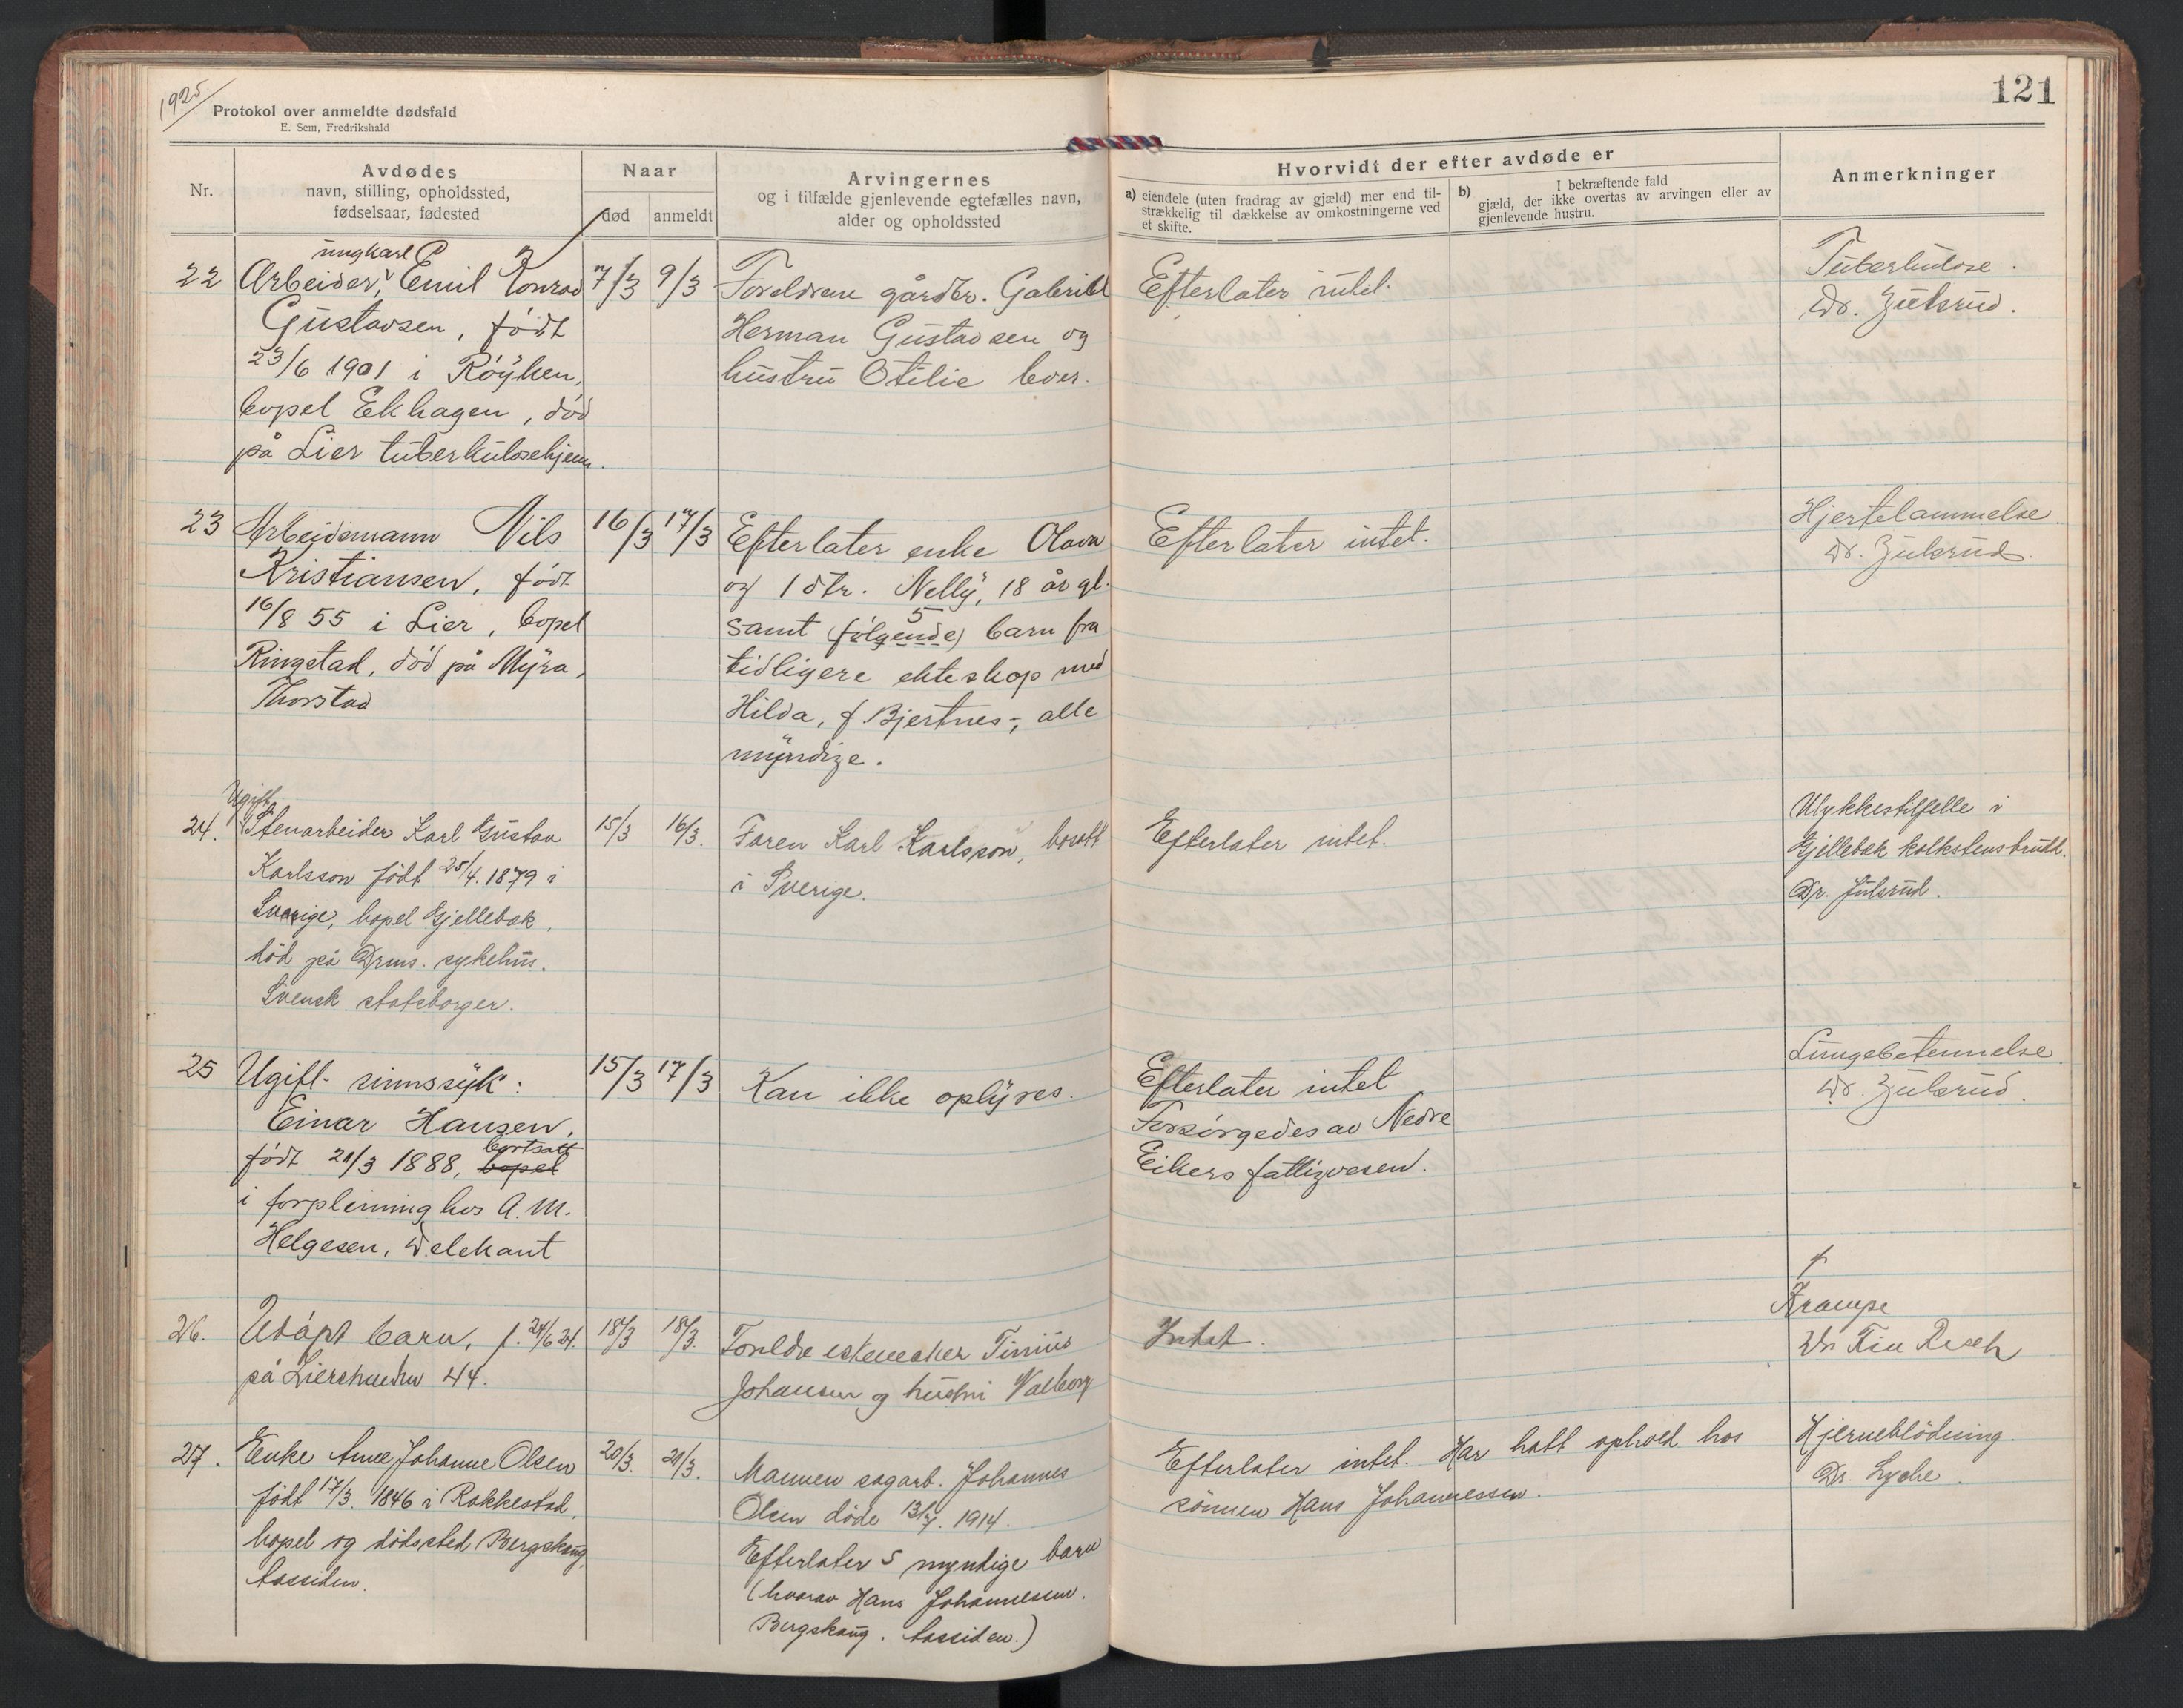 1925.
121
Protokol over anmeldte dødsfald
E. Sem, Fredrikshald
Nr.
Avdødes
navn, stilling, opholdssted,
fødselsaar, fødested
Naar
død
anmeldt
Arvingernes
og i tilfælde gjenlevende egtefælles navn,
alder og opholdssted
Hvorvidt der efter avdøde er
a) eiendele (uten fradrag av gjæld) mer end til-
strækkelig til dækkelse av omkostningerne ved
et skifte.
b) I bekræftende fald
gjæld, der ikke overtas av arvingen eller av
gjenlevende hustru.
Anmerkninger
22
ungkarl
Arbeider, Emil Konrad
Gustavsen, født
23/6 1901 i Röyken,
bopel Ekhagen, död
på Lier tuberkulosehjem.
7/3
9/3
Foreldrene gårdbr. Gabriel
Herman Gustavsen og
hustru Otilie lever.
Efterlater intet.
Tuberkulose.
Dr. Julsrud.
23
Arbeidsmann Nils
Kristiansen, født
16/8 55 i Lier, bopel
Ringstad, död på Myra,
Thorstad
16/3
17/3
Efterlater enke Olava
og 1 dtr. Nelly, 18 år gl.
samt (følgende) 5 barn fra
tidligere ekteskap med
Hilda, f Bjertnes-, alle
myndige.
Efterlater intet.
Hjertelammelse
Dr. Julsrud.
24.
Ugift
Stenarbeider Karl Gustav
Karlsson født 25/4. 1879 i
Sverige, bopel Gjellebæk,
död på Drms. sykehus.
Svensk statsborger.
15/3
16/3.
Faren Karl Karlsson, bosatt
i Sverige.
Efterlater intet.
Ulykkestilfelle i
Gjellebæk kalkstensbrudd.
Dr. Julsrud.
25
Ugift sinnssyk:
Einar Hansen,
født 21/3 1888, bopel bortsatt
i forpleining hos A. M.
Helgesen, Delekant
15/3
17/3
Kan ikke oplyses.
Efterlater intet
Forsørgedes av Nedre
Eikers fattigvesen.
Lungebetennelse
Dr. Julsrud.
26.
Udöpt barn, f. 24/6 24.
på Lierstranden 44.
18/3
18/3.
Foreldre eskemaker Tinius
Johansen og hustru Valborg
Intet.
Krampe
Dr
27.
Enke Anne Johanne Olsen
født 17/3. 1846 i Rakkestad,
bopel og dödssted Bergskaug,
Åssiden.
20/3.
21/3.
Mannen sagarb. Johannes
Olsen döde 13/7. 1914.
Efterlater 5 myndige barn
(hvorav Hans Johannessen.
Bergskaug. Åssiden.)
Efterlater intet. Har hatt ophold hos
sönnen Hans Johannessen.
Hjerneblödning.
Dr. Lyche.